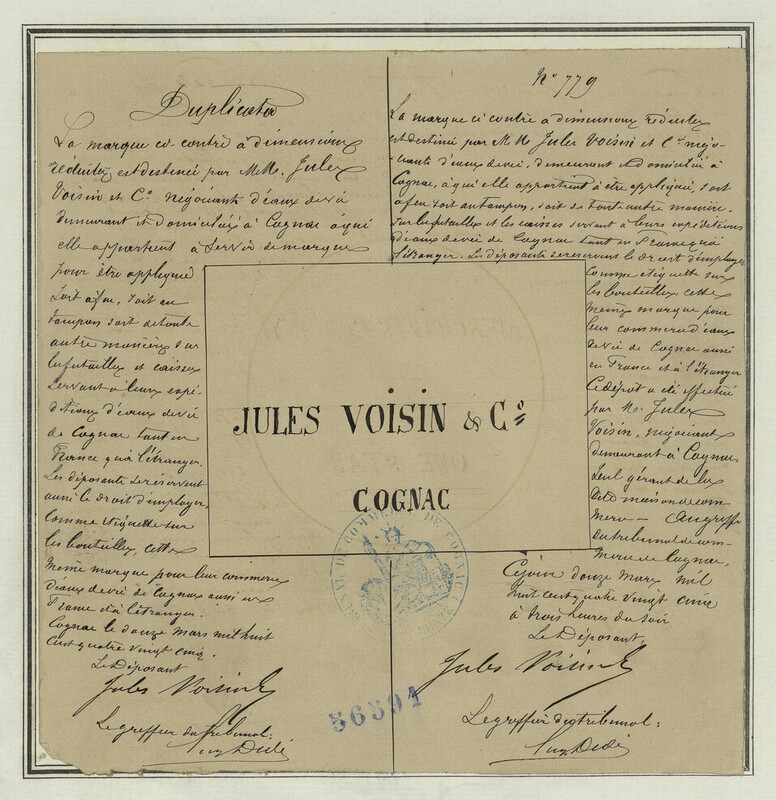 Duplicata
La marque ci-contre à dimensions
réduites est destinée par MM. Jules
Voisin et Co négociants d'eaux de vie
demeurant et domiciliés à Cognac à qui
elle appartient à servir de marque
pour être appliquée
soit à feu, soit au
tampon soit de toute
autre manière sur
les futailles et caisses
servant à leurs expé-
ditions d'eaux de vie
de Cognac tant en
France qu'à l'étranger.
Les déposants se réservent
aussi le droit d'employer
comme étiquette sur
les bouteilles, cette
même marque pour leur commerce
d'eaux de vie de Cognac aussi en
France et à l'étranger.
Cognac le douze mars mil huit
cent quatre vingt cinq.
Le Déposant
Jules Voisin
Le greffier du tribunal:
No 779
La marque ci contre à dimensions réduites
est destinée par MM. Jules Voisin et Cie négo-
ciants d'eaux de vie, demeurant et domiciliés à
Cognac, à qui elle appartient à être appliquée, soit
à feu soit au tampon, soit de toute autre manière,
sur les futailles et les caisses servant à leurs expéditions
d'eaux de vie de Cognac tant en France qu'à
l'étranger. Les déposants se réservent le droit d'employer
comme étiquette sur
les bouteilles cette
même marque pour
leur commerce d'eaux
de vie de Cognac aussi
en France et à l'étranger
Ce dépôt a été effectué
par M. Jules
Voisin, négociant
demeurant à Cognac,
seul gérant de la
dite maison de com-
merce – au greffe
du tribunal de com-
merce de Cognac,
Cejour douze mars mil
huit cent quatre vingt cinq
à trois heures du soir
Le Déposant,
Jules Voisin
Le greffier du tribunal:
JULES VOISIN & Co
COGNAC
TRIBUNAL DE COMMERCE DE COGNAC
56591